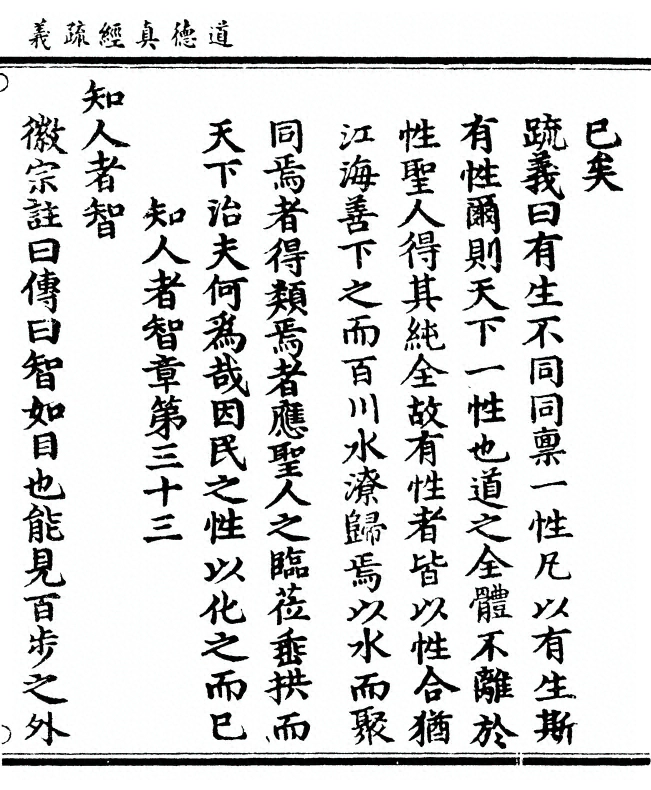 道德真經疏義
已矣
疏義曰有生不同同禀一性凡以有生斯
有性爾則天下一性也道之全體不離於
性聖人得其純全故有性者皆以性合猶
江海善下之而百川水潦歸焉以水而聚
同焉者得類焉者應聖人之臨莅垂拱而
天下治夫何為哉因民之性以化之而已
知人者智章第三十三
知人者智
徽宗註曰傳曰智如目也能見百步之外